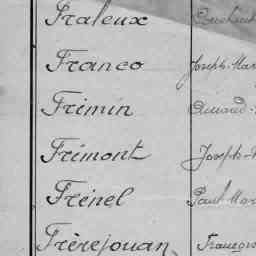 Fraleux
Franco Joseph-Mar
Frimin
Frémont Joseph-
Frénel Paul-Mar
Frèrejouan François